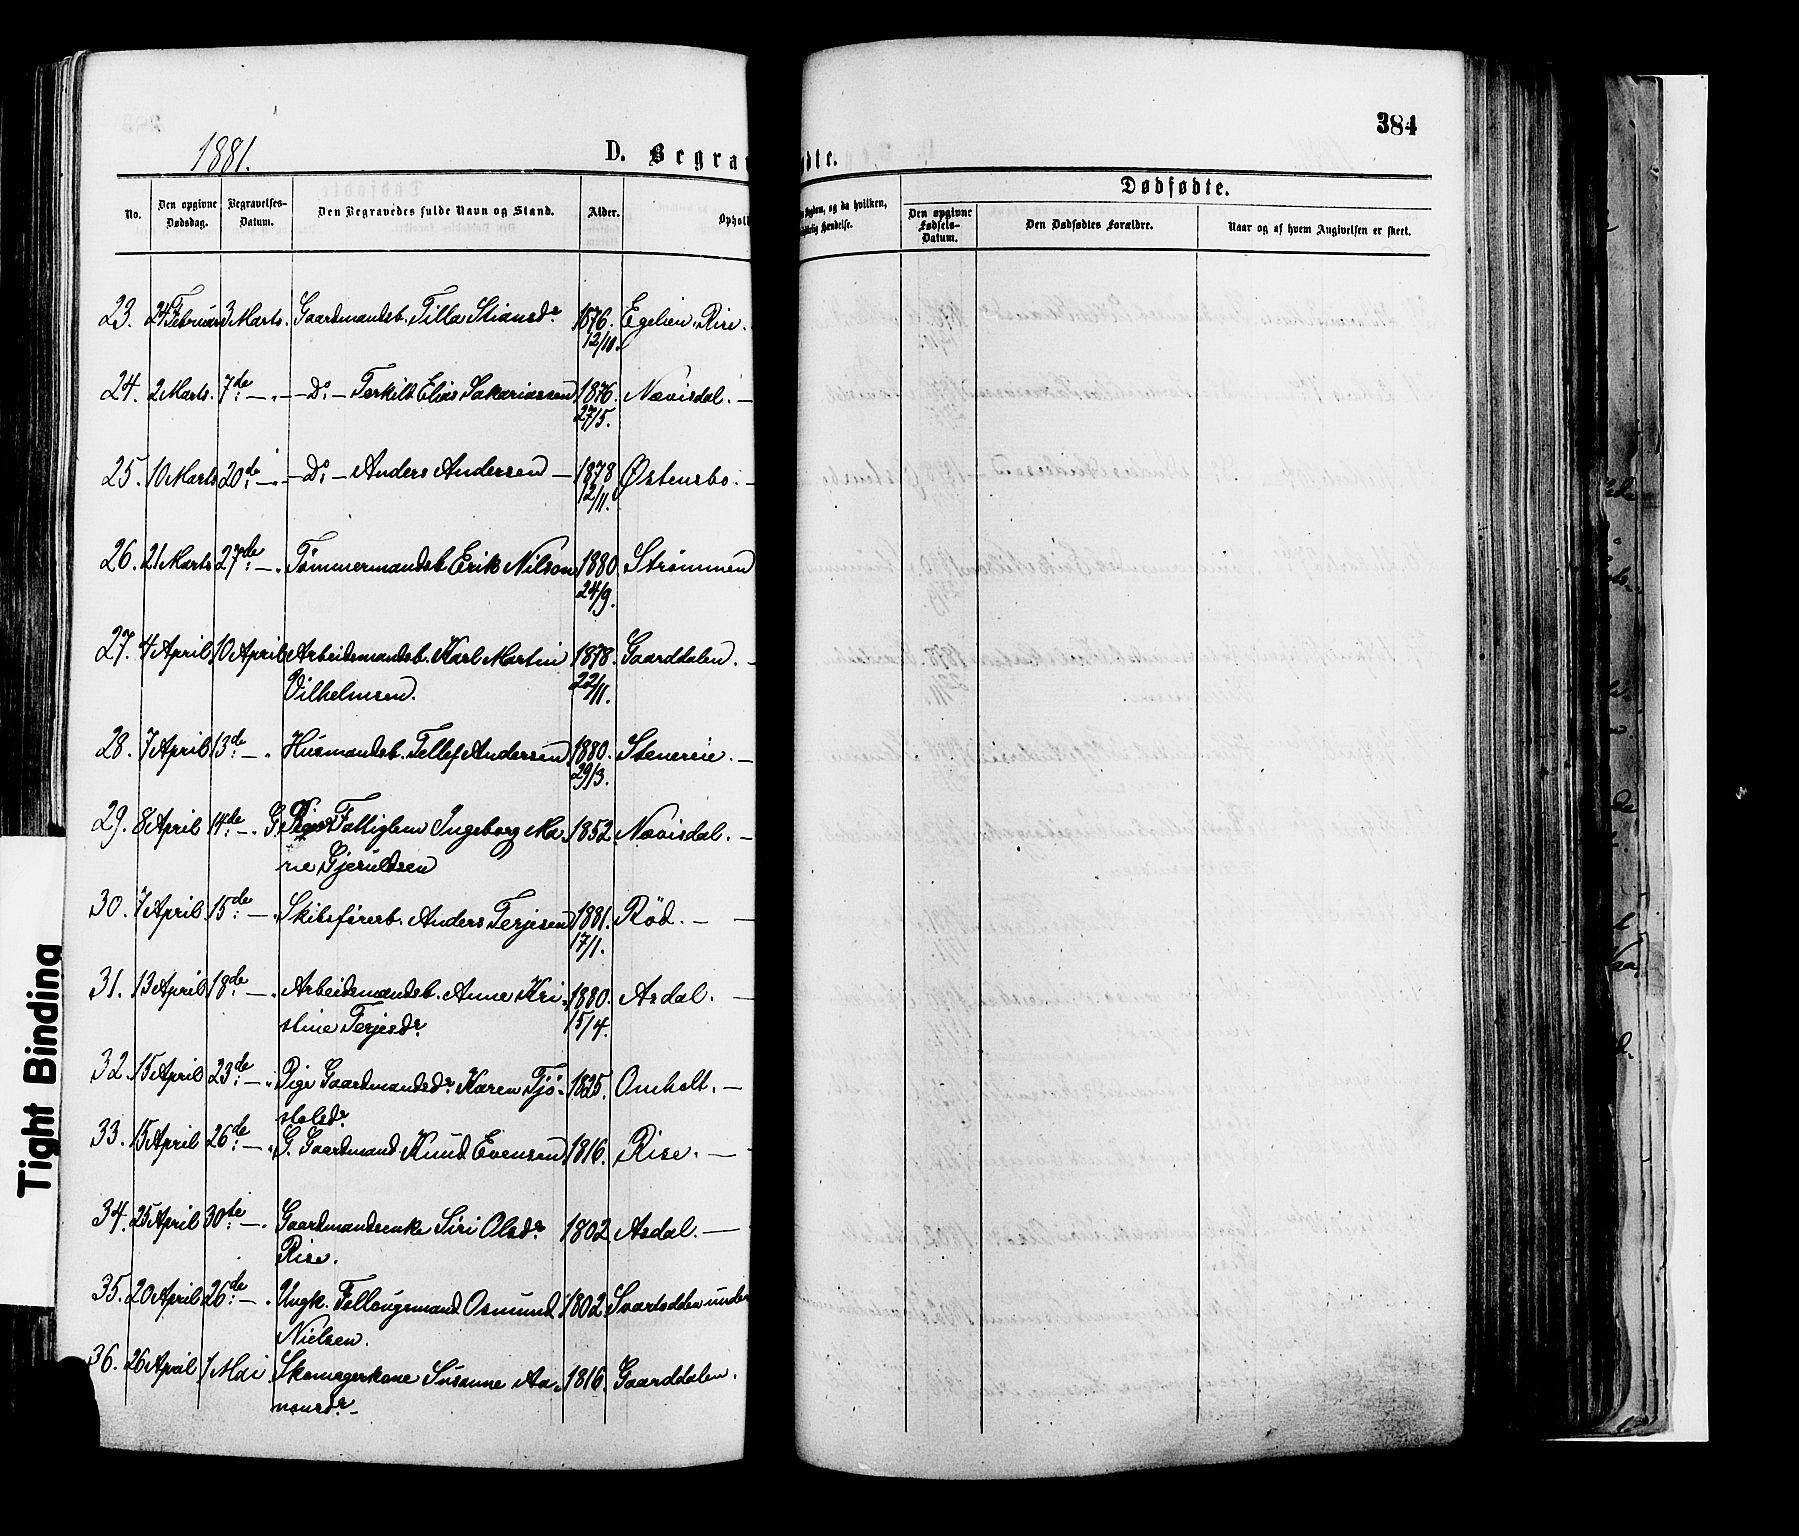 384
1881.
D. Begra
dte.
Dødfødte.
No.
Den opgivne Dødsdag.
Begravelses-Datum.
Den Begravedes fulde Navn og Stand.
Alder.
Ophol
Sygdom, og da hvilken,
Hændelse.
Den opgivne Fødsels-Datum.
Den Dødfødtes Forældre.
Naar og af hvem Angivelsen er skeet.
23. 24 Februar 3 Marts. Gaardmandsb. Tilla Stiansdr 1876. Egelien, Rise.
12/10.
24. 2 Marts. 7de — " — Do — Terkild Elias Sakariassen 1876. Nævisdal. —
27/5.
25. 10 Marts 20de — " — Do — Anders Andersen — 1878 Østensbo. —
12/11.
26. 21 Marts 27de — " Tømmermandsb. Erik Nilson 1880. Strømmen
24/9.
27. 4 April 10 April Arbeidsmandsb. Karl Martin 1878. Gaarddalen. —
Vilhelmsen. 22/11.
28. 7 April 13de — " Husmandsb. Tellef Andersen 1880. Stenereie. —
29/3.
29. 8 April 14de — " G. Pige Fattiglem Ingeborg Ma- 1852. Nævisdal. —
rie Gjeruldsen
30. 7 April 15de — " Skibsførerb. Anders Terjesen 1881. Rød. — —
17/1.
31. 13 April 18de — " Arbeidsmandsb. Anne Kri- 1880. Asdal. —
stine Terjesdr. 15/4.
32. 15 April 23de — " Pige Gaardmandsdr. Karen Tjø- 1825. Omholt. —
stolsdr.
33. 15 April 26de — " G. Gaardmand Knud Evensen 1816. Rise. — —
34. 25 April 30te — " Gaardmandsenke Siri Olsdr. 1802. Asdal. —
Rise.
35. 20 April 26de — " Ungk. Fellaugsmand Osmund 1802. Svartodden under
Nielsen.
36. 26 April 1 Mai. Skomagerkone Susanne Aa- 1816. Gaarddalen.
nonsdr. —
Tight Binding